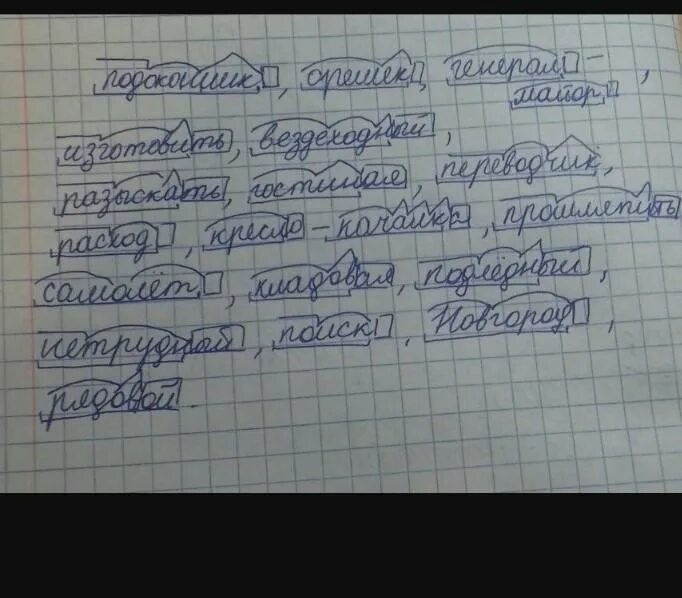 подоконник, орешек, генерал-
майор,
изготовить, вездеходный,
разыскать, гостиная, переводчик,
расход, кресло-качалка, прошляпить
самолёт, кладовая, подлёдный,
нетрудной, поиск, Новгород,
рядовой.